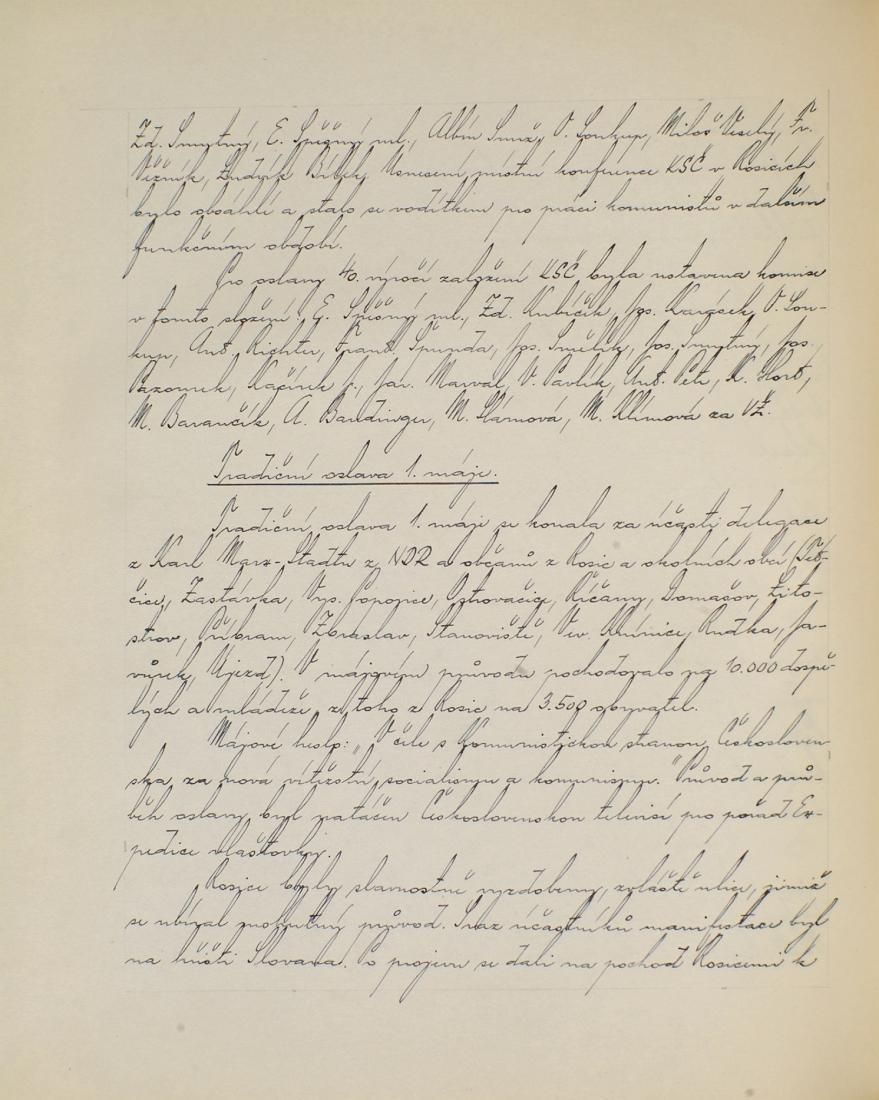 Zd. Smutný, E. Spěšný ml., Albín Smrž, O. Soukup, Miloš Veselý, Fr.
Věžník, Ludvík Bílek. Usnesení místní konference KSČ v Rosicích
bylo obsáhlé a stalo se vodítkem pro práci komunistů v dalším
funkčním období.
Pro oslavy 40. výročí založení KSČ byla ustavena komise
v tomto složení: E. Spěšný ml., Zd. Kubíček, Jos. Karásek, O. Sou-
kup, Ant. Richter, Frant. Špunda, Jos. Smělík, Jos. Smutný, Jos.
Pazourek, Kačírek J., Jar. Marval, V. Pavlík, Ant. Petr, K. Hort,
M. Barančík, A. Baudinger, M. Slámová, M. Klímová za VŽ.
Tradiční oslava 1. máje.
Tradiční oslava 1. máje se konala za účasti delegace
z Karl Marx-Stadtu z NDR a občanů z Rosic a okolních obcí (Tet-
čice, Zastávka, Vys. Popovice, Ostrovačice, Říčany, Domašov, Lito-
strov, Příbram, Zbraslav, Stanoviště, Vev. Knínice, Rudka, Ja-
vůrek, Újezd). V májovém průvodu pochodovalo na 10.000 dospě-
lých a mládeže, z toho z Rosic na 3.500 obyvatel.
Májové heslo: „V čele s Komunistickou stranou Českosloven-
ska za nová vítězství socialismu a komunismu." Průvod a prů-
běh oslavy byl natáčen Československou televisí pro pořad Ex-
pedice vlaštovky.
Rosice byly slavnostně vyzdobeny, zvláště ulice, jimiž
se ubíral mohutný průvod. Sraz účastníků manifestace byl
na hřišti Slovana. Po projevu se dali na pochod Rosicemi k